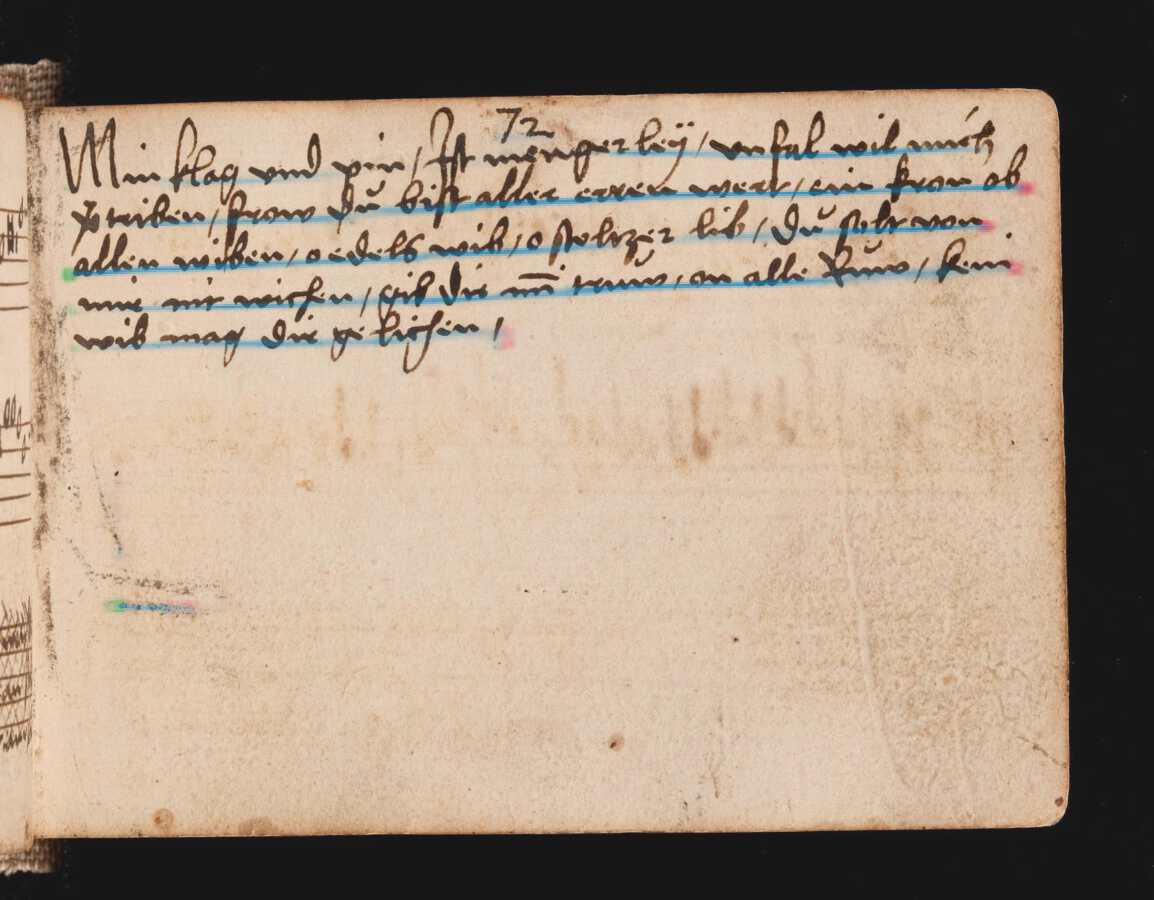 72
Min klag vnd pin / Ist mengerleÿ / vnfal wil mich
v̄triben / frow du bist aller erren wert / ein kron ob
allen wiben / o edels wib / o stoltzer lib / du solt von
mir nit wichen / gib dir min̄ truw / on alle Ruw / kein
wib mag dir gelichen /